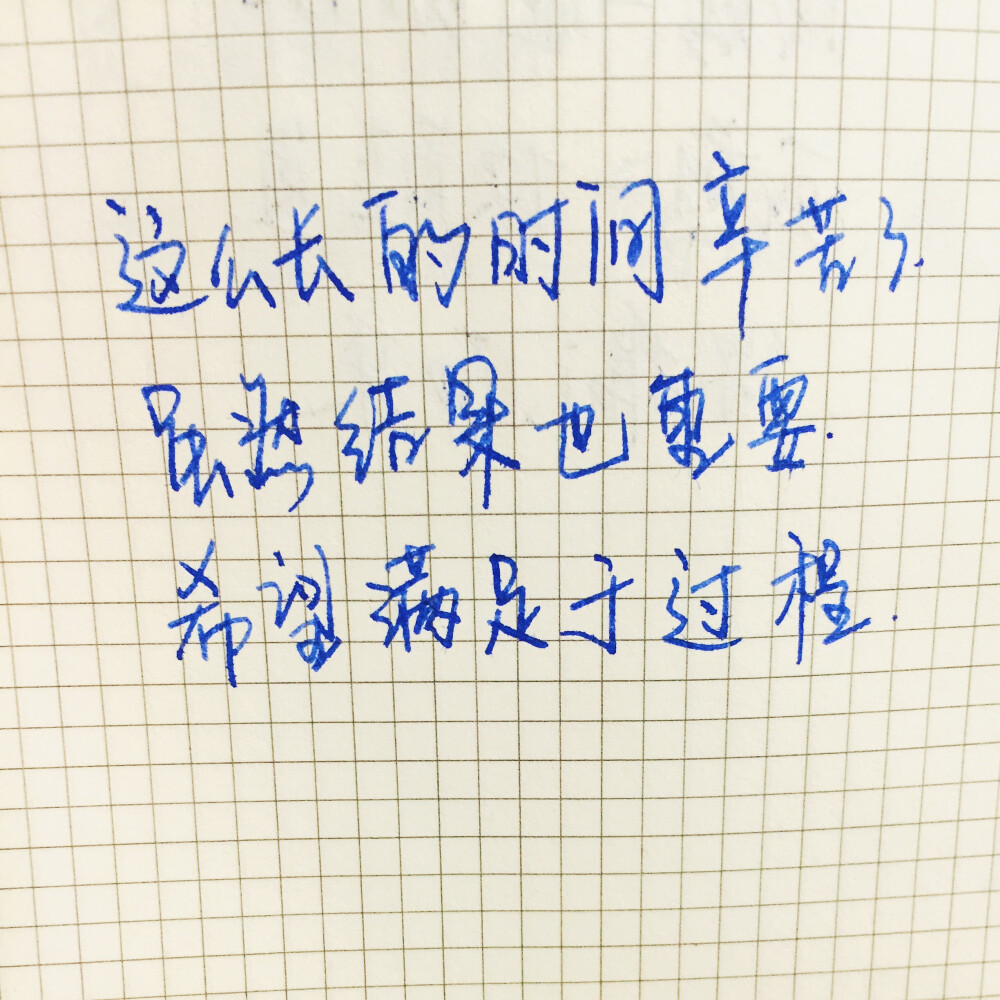 这么长的时间辛苦了.
虽然结果也重要.
希望满足于过程.